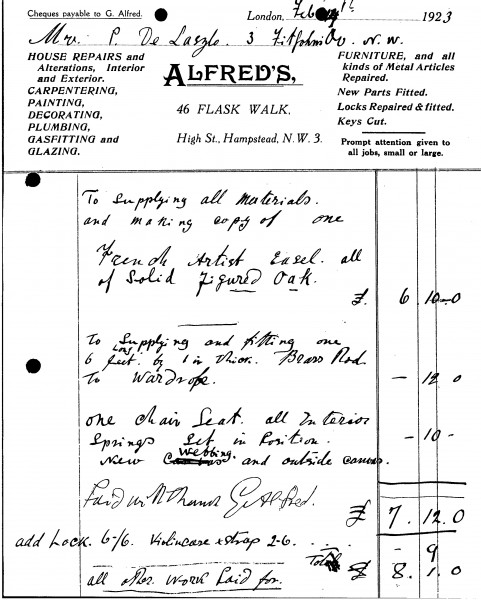 Cheques payable to G. Alfred.
London, Feb 1923
Mrs. P. De Laszlo. 3 Fitzjohns Av. N.W.
HOUSE REPAIRS and
Alterations, Interior
and Exterior.
CARPENTERING,
PAINTING,
DECORATING,
PLUMBING,
GASFITTING and
GLAZING.
ALFRED'S,
46 FLASK WALK,
High St., Hampstead, N.W. 3.
FURNITURE, and all
kinds of Metal Articles
Repaired.
New Parts Fitted.
Locks Repaired & fitted.
Keys Cut.
Prompt attention given to
all jobs, small or large.
To Supplying all Materials.
and making copy of one
French Artist Easel. all
of Solid Figured Oak.
£. 6. 10-0
To Supplying and fitting one
6 feet Long. by 1 in thick. Brass Rod
To Wardrobe. - 12 0
one Chair Seat. all Interior
Springs Set in Position. - 10 -
New Webbing. and outside canvas.
Paid with thanks G. Alfred. £ 7. 12. 0
add Lock. 6-/6. Violincase & strap 2-6. - 9
Total £ 8. 1. 0
all other work paid for.